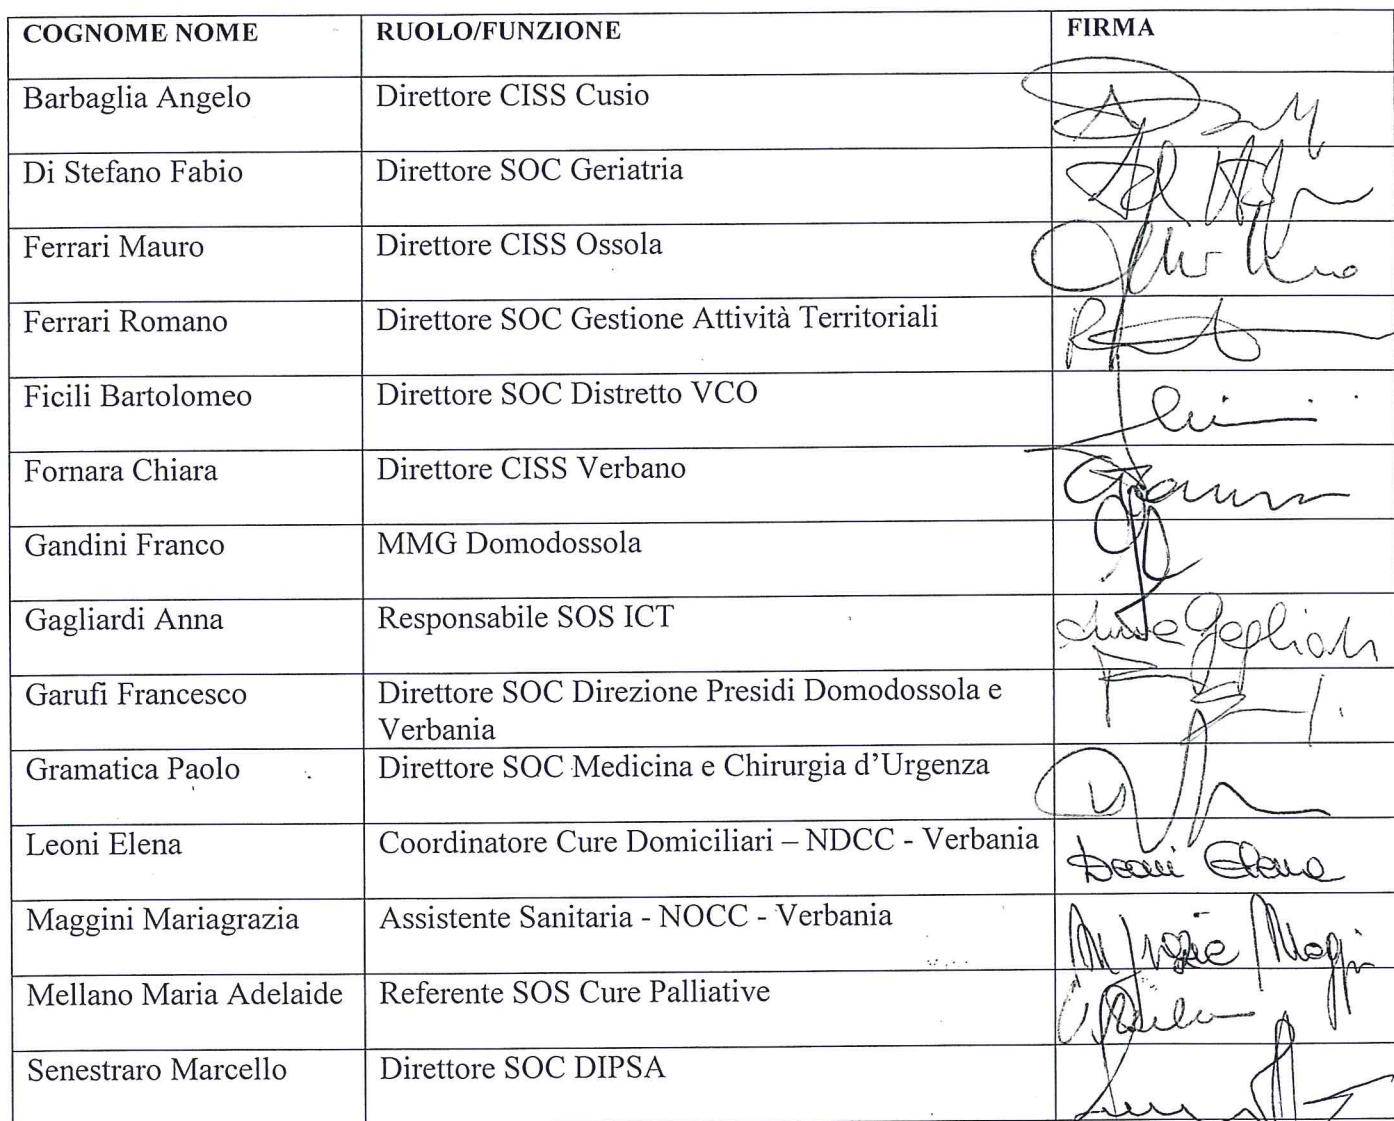 COGNOME NOME RUOLO/FUNZIONE FIRMA
Barbaglia Angelo Direttore CISS Cusio
Di Stefano Fabio Direttore SOC Geriatria
Ferrari Mauro Direttore CISS Ossola
Ferrari Romano Direttore SOC Gestione Attività Territoriali
Ficili Bartolomeo Direttore SOC Distretto VCO
Fornara Chiara Direttore CISS Verbano
Gandini Franco MMG Domodossola
Gagliardi Anna Responsabile SOS ICT
Garufi Francesco Direttore SOC Direzione Presidi Domodossola e
Verbania
Gramatica Paolo Direttore SOC Medicina e Chirurgia d’Urgenza
Leoni Elena Coordinatore Cure Domiciliari – NDCC - Verbania
Maggini Mariagrazia Assistente Sanitaria - NOCC - Verbania
Mellano Maria Adelaide Referente SOS Cure Palliative
Senestraro Marcello Direttore SOC DIPSA